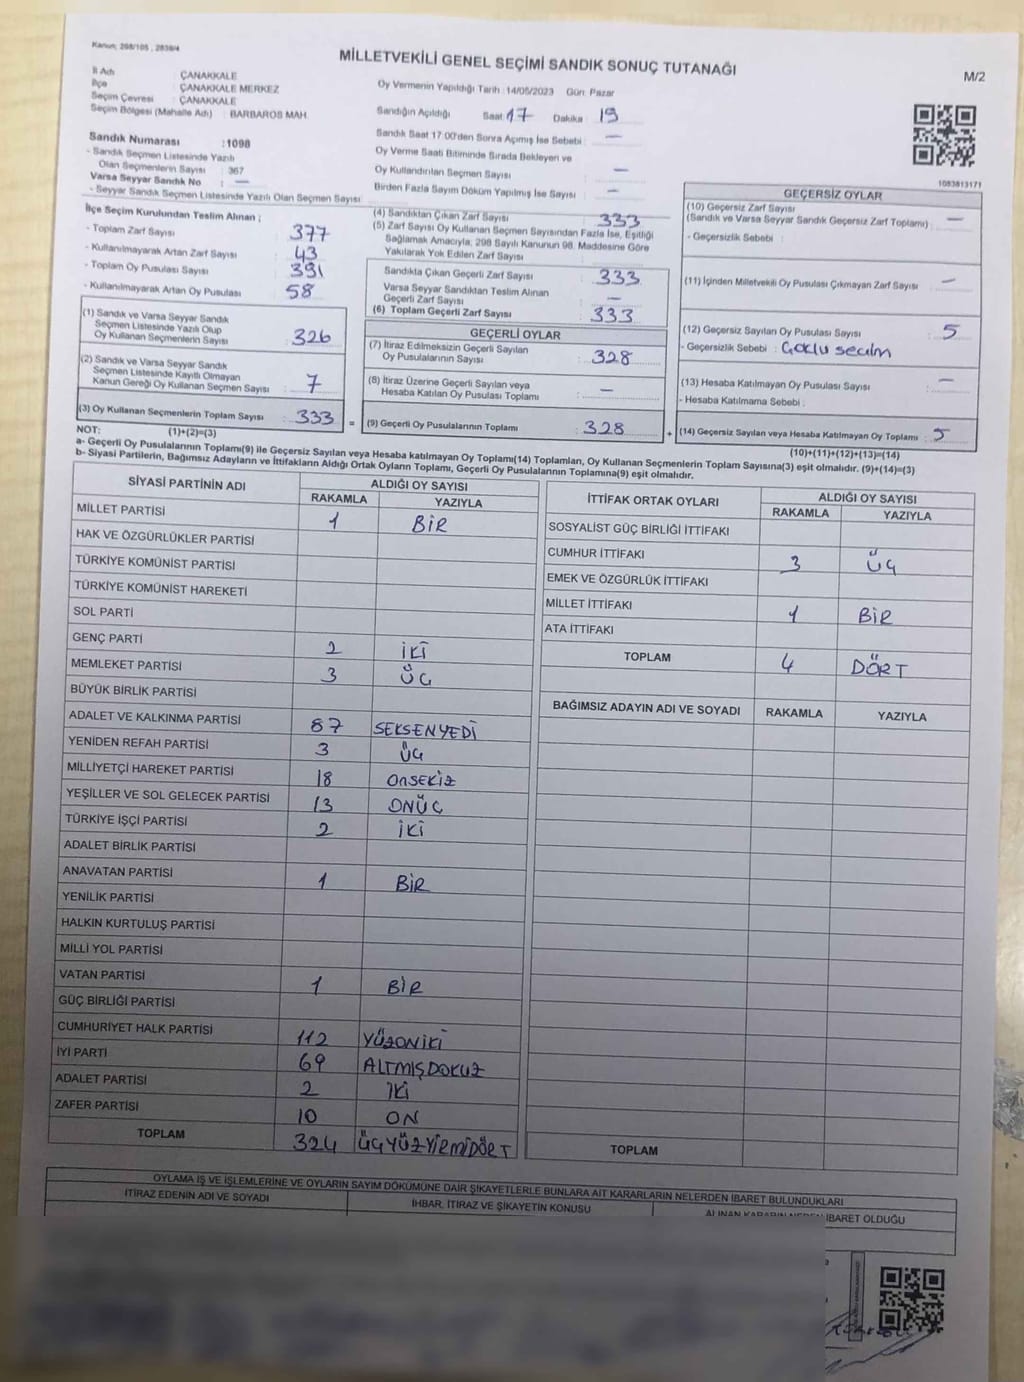 Kanun; 298/105 , 2839/4
MİLLETVEKİLİ GENEL SEÇİMİ SANDIK SONUÇ TUTANAĞI
M/2
İl Adı : ÇANAKKALE
İlçe : ÇANAKKALE MERKEZ
Seçim Çevresi : ÇANAKKALE
Seçim Bölgesi (Mahalle Adı) : BARBAROS MAH.
Oy Vermenin Yapıldığı Tarih : 14/05/2023 Gün: Pazar
Sandığın Açıldığı Saat: 17 Dakika : 19
Sandık Saat 17:00'den Sonra Açımış İse Sebebi : —
Oy Verme Saati Bitiminde Sırada Bekleyen ve
Oy Kullandırılan Seçmen Sayısı : —
Birden Fazla Sayım Döküm Yapılmış İse Sayısı : —
Sandık Numarası : 1098
- Sandık Seçmen Listesinde Yazılı
Olan Seçmenlerin Sayısı : 367
Varsa Seyyar Sandık No : —
- Seyyar Sandık Seçmen Listesinde Yazılı Olan Seçmen Sayısı
1083813171
İlçe Seçim Kurulundan Teslim Alınan ;
- Toplam Zarf Sayısı : 377
- Kullanılmayarak Artan Zarf Sayısı : 43
- Toplam Oy Pusulası Sayısı : 391
- Kullanılmayarak Artan Oy Pusulası : 58
(1) Sandık ve Varsa Seyyar Sandık
Seçmen Listesinde Yazılı Olup
Oy Kullanan Seçmenlerin Sayısı : 326
(2) Sandık ve Varsa Seyyar Sandık
Seçmen Listesinde Kayıtlı Olmayan
Kanun Gereği Oy Kullanan Seçmen Sayısı : 7
(3) Oy Kullanan Seçmenlerin Toplam Sayısı : 333
(4) Sandıktan Çıkan Zarf Sayısı : 333
(5) Zarf Sayısı Oy Kullanan Seçmen Sayısından Fazla İse, Eşitliği
Sağlamak Amacıyla; 298 Sayılı Kanunun 98. Maddesine Göre
Yakılarak Yok Edilen Zarf Sayısı
Sandıkta Çıkan Geçerli Zarf Sayısı : 333
Varsa Seyyar Sandıktan Teslim Alınan
Geçerli Zarf Sayısı : —
(6) Toplam Geçerli Zarf Sayısı : 333
GEÇERLİ OYLAR
(7) İtiraz Edilmeksizin Geçerli Sayılan
Oy Pusulalarının Sayısı : 328
(8) İtiraz Üzerine Geçerli Sayılan veya
Hesaba Katılan Oy Pusulası Toplamı : —
= (9) Geçerli Oy Pusulalarının Toplamı : 328
GEÇERSİZ OYLAR
(10) Geçersiz Zarf Sayısı
(Sandık ve Varsa Seyyar Sandık Geçersiz Zarf Toplamı) : —
- Geçersizlik Sebebi :
(11) İçinden Milletvekili Oy Pusulası Çıkmayan Zarf Sayısı : —
(12) Geçersiz Sayılan Oy Pusulası Sayısı : 5
- Geçersizlik Sebebi : Çoklu secim
(13) Hesaba Katılmayan Oy Pusulası Sayısı : —
- Hesaba Katılmama Sebebi :
+ (14) Geçersiz Sayılan veya Hesaba Katılmayan Oy Toplamı : 5
NOT: (1)+(2)=(3)
(10)+(11)+(12)+(13)=(14)
a- Geçerli Oy Pusulalarının Toplamı(9) ile Geçersiz Sayılan veya Hesaba katılmayan Oy Toplamı(14) Toplamları, Oy Kullanan Seçmenlerin Toplam Sayısına(3) eşit olmalıdır. (9)+(14)=(3)
b- Siyasi Partilerin, Bağımsız Adayların ve İttifakların Aldığı Ortak Oyların Toplamı, Geçerli Oy Pusulalarının Toplamına(9) eşit olmalıdır.
SİYASİ PARTİNİN ADI ALDIĞI OY SAYISI
RAKAMLA YAZIYLA
MİLLET PARTİSİ 1 BİR
HAK VE ÖZGÜRLÜKLER PARTİSİ
TÜRKİYE KOMÜNİST PARTİSİ
TÜRKİYE KOMÜNİST HAREKETİ
SOL PARTİ
GENÇ PARTİ 2 İKİ
MEMLEKET PARTİSİ 3 ÜÇ
BÜYÜK BİRLİK PARTİSİ
ADALET VE KALKINMA PARTİSİ 87 SEKSENYEDİ
YENİDEN REFAH PARTİSİ 3 ÜÇ
MİLLİYETÇİ HAREKET PARTİSİ 18 ONSEKİZ
YEŞİLLER VE SOL GELECEK PARTİSİ 13 ONÜÇ
TÜRKİYE İŞÇİ PARTİSİ 2 İKİ
ADALET BİRLİK PARTİSİ
ANAVATAN PARTİSİ 1 BİR
YENİLİK PARTİSİ
HALKIN KURTULUŞ PARTİSİ
MİLLİ YOL PARTİSİ
VATAN PARTİSİ 1 BİR
GÜÇ BİRLİĞİ PARTİSİ
CUMHURİYET HALK PARTİSİ 112 YÜZONİKİ
İYİ PARTİ 69 ALTMIŞDOKUZ
ADALET PARTİSİ 2 İKİ
ZAFER PARTİSİ 10 ON
TOPLAM 324 ÜÇYÜZYİRMİDÖRT
İTTİFAK ORTAK OYLARI ALDIĞI OY SAYISI
RAKAMLA YAZIYLA
SOSYALİST GÜÇ BİRLİĞİ İTTİFAKI
CUMHUR İTTİFAKI 3 ÜÇ
EMEK VE ÖZGÜRLÜK İTTİFAKI
MİLLET İTTİFAKI 1 BİR
ATA İTTİFAKI
TOPLAM 4 DÖRT
BAĞIMSIZ ADAYIN ADI VE SOYADI RAKAMLA YAZIYLA
TOPLAM
OYLAMA İŞ VE İŞLEMLERİNE VE OYLARIN SAYIM DÖKÜMÜNE DAİR ŞİKAYETLERLE BUNLARA AİT KARARLARIN NELERDEN İBARET BULUNDUKLARI
İTİRAZ EDENİN ADI VE SOYADI İHBAR, İTİRAZ VE ŞİKAYETİN KONUSU ALINAN KARARIN NEDEN İBARET OLDUĞU